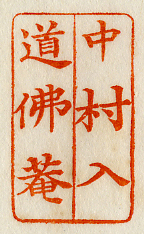 中村入
道佛菴